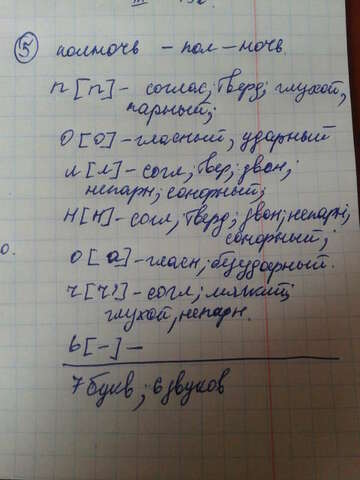 ⑤ полночь - пол-ночь.
п [п] - соглас; тверд; глухой,
парный;
о [о] - гласный, ударный
л [л] - согл; твер; звон;
непарн; сонорный;
н [н] - согл; тверд; звон; непарн;
сонорный;
о [а] - гласн; безударный.
ч [ч'] - согл; мягкий;
глухой, непарн.
ь [-] -
7 букв; 6 звуков